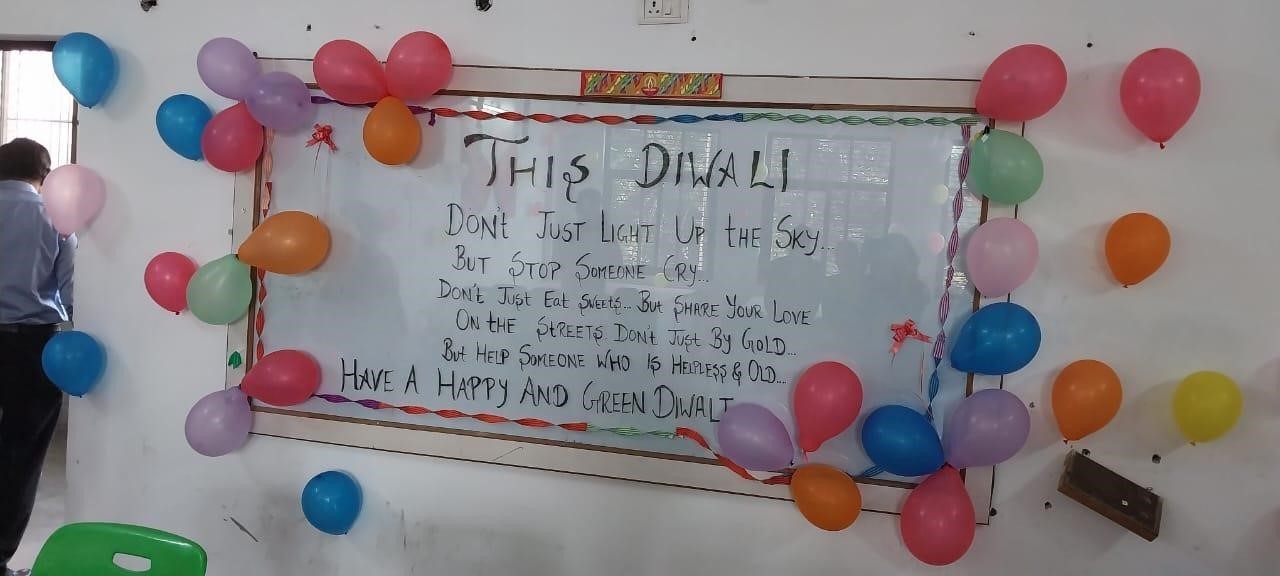 THIS DIWALI
DON'T JUST LIGHT UP THE SKY...
BUT STOP SOMEONE CRY...
DON'T JUST EAT SWEETS... BUT SHARE YOUR LOVE
ON THE STREETS DON'T JUST BY GOLD...
BUT HELP SOMEONE WHO IS HELPLESS & OLD...
HAVE A HAPPY AND GREEN DIWALI